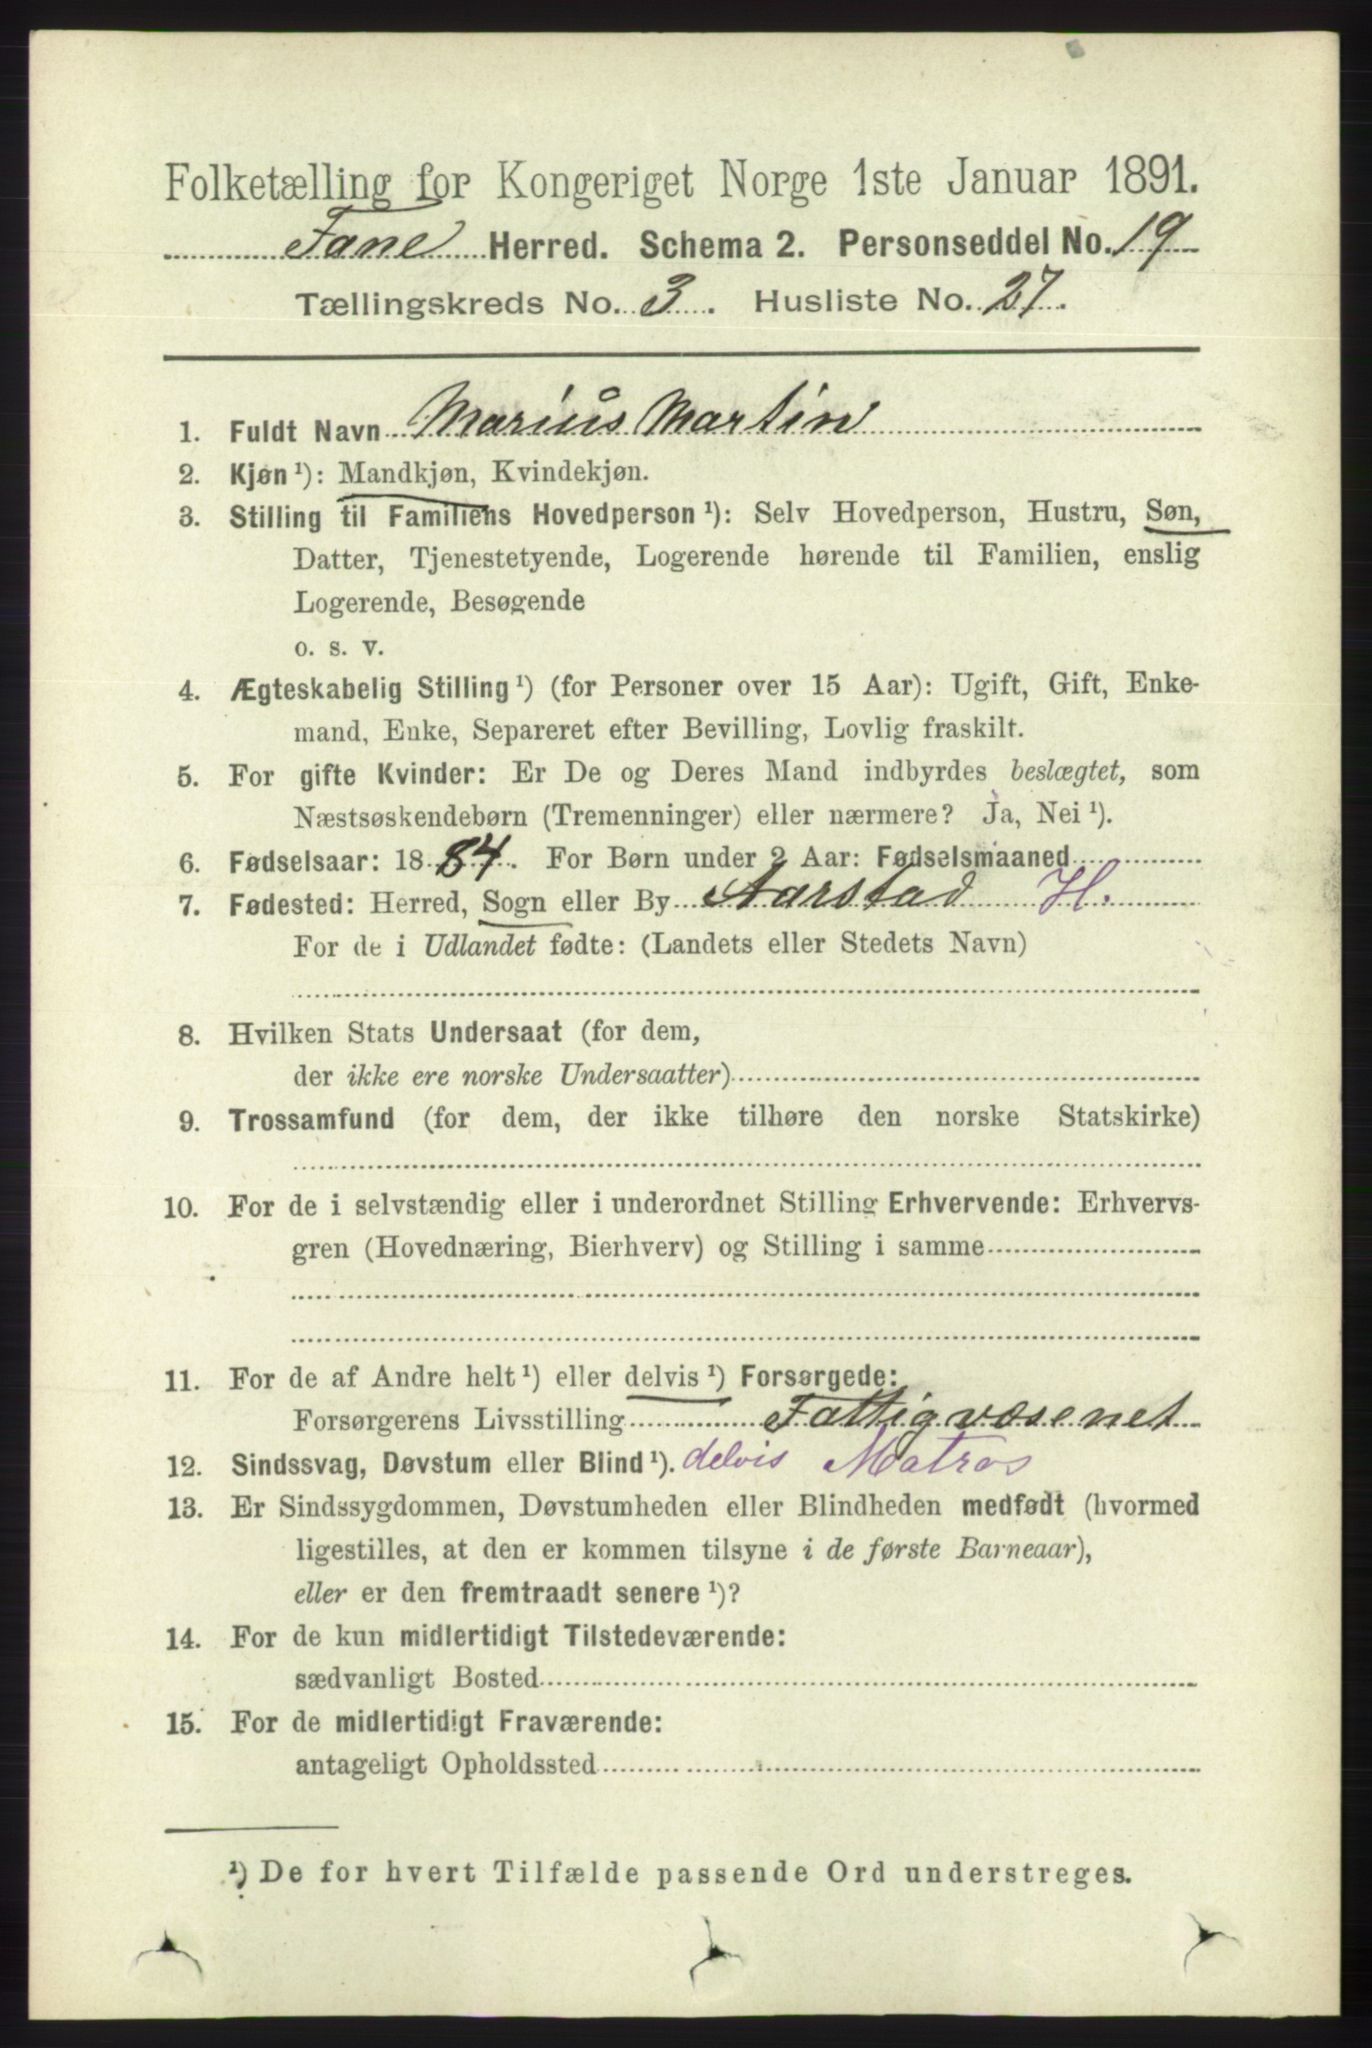 Folketælling for Kongeriget Norge 1ste Januar 1891.
Fane Herred. Schema 2. Personseddel No. 19
Tællingskreds No. 3. Husliste No. 27.
1. Fuldt Navn Marius Martin
2. Kjøn ¹): Mandkjøn, Kvindekjøn.
3. Stilling til Familiens Hovedperson ¹): Selv Hovedperson, Hustru, Søn,
Datter, Tjenestetyende, Logerende hørende til Familien, enslig
Logerende, Besøgende
o. s. v.
4. Ægteskabelig Stilling ¹) (for Personer over 15 Aar): Ugift, Gift, Enke-
mand, Enke, Separeret efter Bevilling, Lovlig fraskilt.
5. For gifte Kvinder: Er De og Deres Mand indbyrdes beslægtet, som
Næstsøskendebørn (Tremenninger) eller nærmere? Ja, Nei ¹).
6. Fødselsaar: 1884. For Børn under 2 Aar: Fødselsmaaned
7. Fødested: Herred, Sogn eller By Aarstad H.
For de i Udlandet fødte: (Landets eller Stedets Navn)
8. Hvilken Stats Undersaat (for dem,
der ikke ere norske Undersaatter)
9. Trossamfund (for dem, der ikke tilhøre den norske Statskirke)
10. For de i selvstændig eller i underordnet Stilling Erhvervende: Erhvervs-
gren (Hovednæring, Bierhverv) og Stilling i samme
11. For de af Andre helt ¹) eller delvis ¹) Forsørgede:
Forsørgerens Livsstilling Fattigvæsenet
12. Sindssvag, Døvstum eller Blind ¹). delvis Matros
13. Er Sindssygdommen, Døvstumheden eller Blindheden medfødt (hvormed
ligestilles, at den er kommen tilsyne i de første Barneaar),
eller er den fremtraadt senere ¹)?
14. For de kun midlertidigt Tilstedeværende:
sædvanligt Bosted
15. For de midlertidigt Fraværende:
antageligt Opholdssted
¹) De for hvert Tilfælde passende Ord understreges.